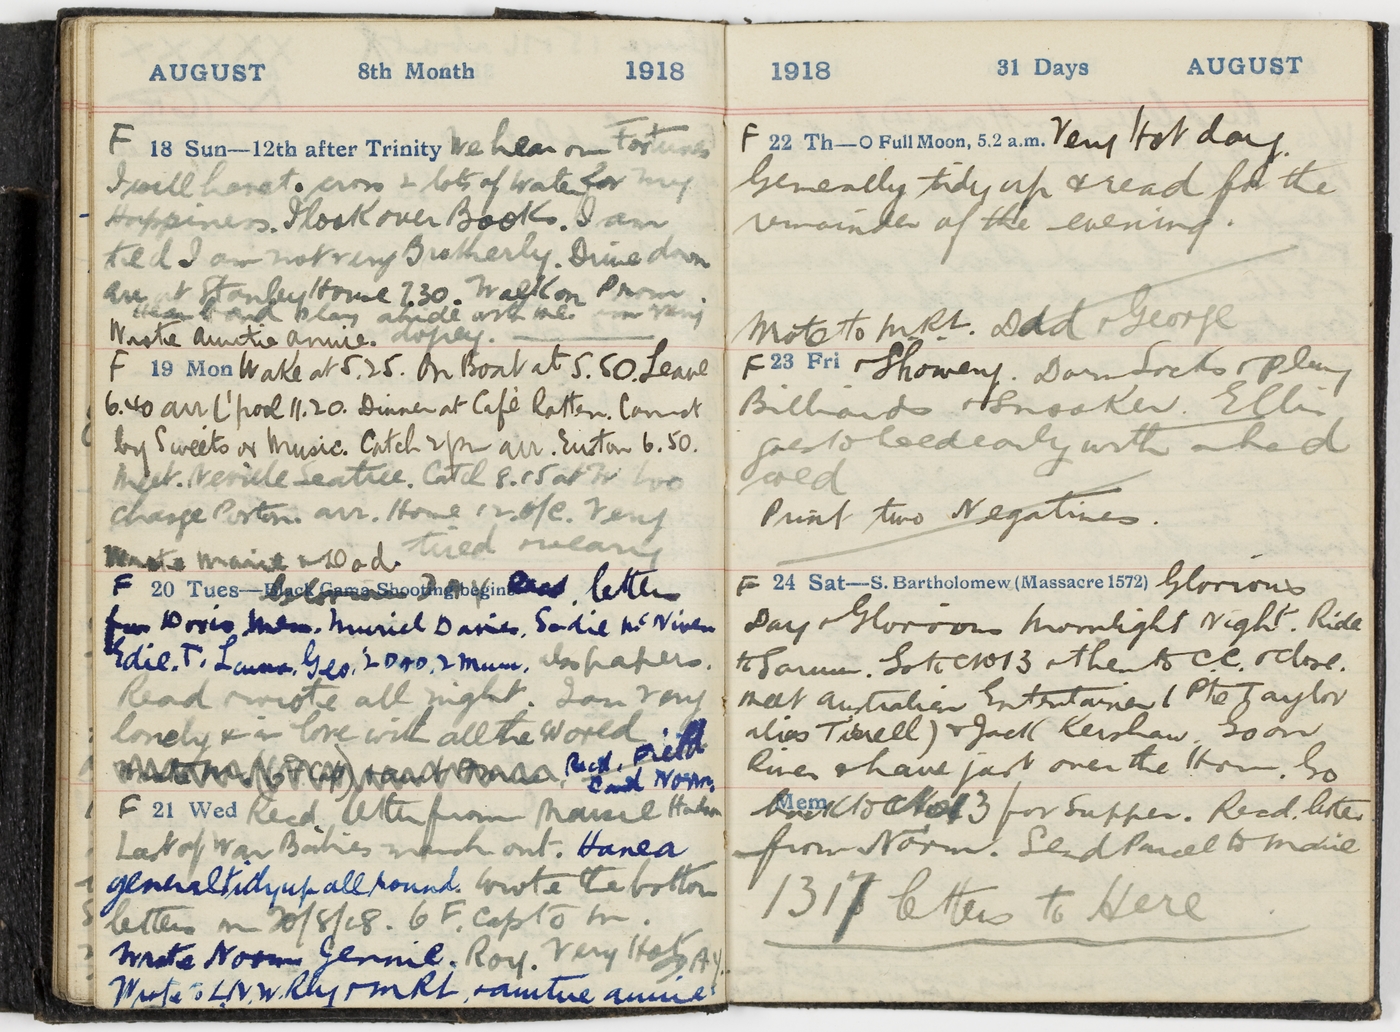 AUGUST 8th Month 1918
F 18 Sun—12th after Trinity We hear our Fortunes
I will cross & lots of water for my
Happiness. I look over Books. I am
told I am not very Brotherly. Drive down
arr at Stanley House 7.30. Walk on Prom.
Hear band play abide with me. am very
Wrote Auntie Annie. dopey.
F 19 Mon Wake at 5.25. On Boat at 5.50. Leave
6.40 arr L'pool 11.20. Dinner at Café Cannot
buy Sweets or Music. Catch 2pm arr. Euston 6.50.
Meet. Neville Seattle. Catch 8.15 at W'loo
change Porton. arr. Home 12.o/c. Very
tired & weary
Wrote Maisie & Dad.
F 20 Tues—Black Game Shooting begins Glorious Day Recd. letters
from Doris, Mem. Muriel Davies, Sadie McNiven
Edie. T. Laura, Geo, 2 Dad, 2 Mum, also papers.
Read & wrote all night. I am very
lonely & in love with all the World
Recd. Field
Card Norm.
F 21 Wed Recd. letter from Maisie
Last of War Babies march out. Have a
general tidy up all round. Wrote the bottom
letters on 20/8/18. 6 F. Cap to M.
Wrote Norm Gennie. Roy. Very Hot DAY.
Wrote to L.N.W. Rly & M Rt. & auntie annie
1918 31 Days AUGUST
F 22 Th—O Full Moon, 5.2 a.m. Very Hot day.
Generally tidy up & read for the
remainder of the evening.
Wrote to M Rt. Dad & George
F 23 Fri Showery. Darn Socks & play
Billiards & Snooker. Ellis
goes to bed early with a bad
cold
Print two Negatives.
F 24 Sat—S. Bartholomew (Massacre 1572) Glorious
Day & Glorious Moonlight Night. Ride
to Sarum. Go to CH013 & then to CC. & close.
meet Australian Entertainer (Pte Taylor
alias Tirrell) & Jack Kershaw. Go on
River & have just over the Hour. Go
Mem back to 13 for Supper. Recd. letter
from Norm. Send Parcel to Maisie
1317 letters to Here